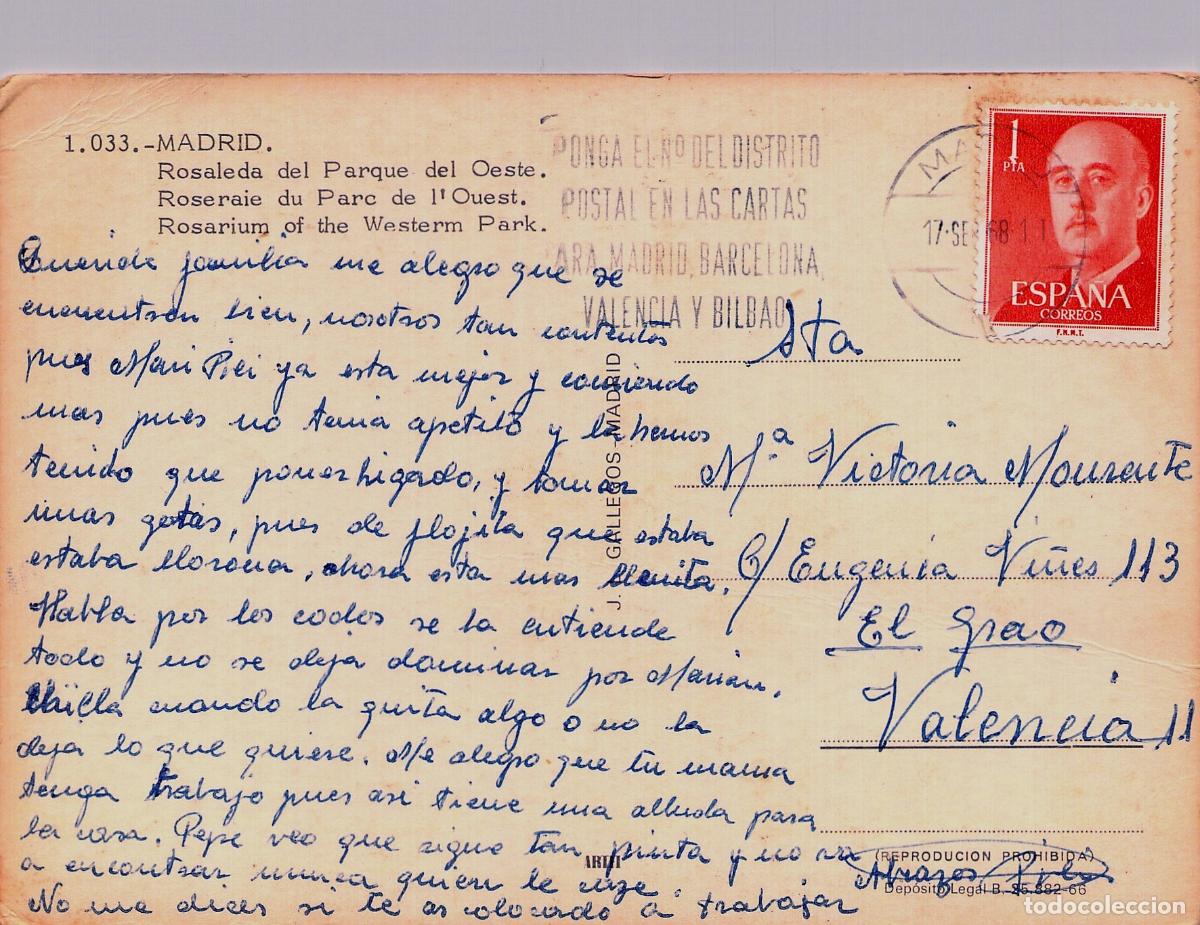 1.033.-MADRID.
Rosaleda del Parque del Oeste.
Roseraie du Parc de l'Ouest.
Rosarium of the Westerm Park.
PONGA EL Nº DEL DISTRITO
POSTAL EN LAS CARTAS
ARA MADRID, BARCELONA,
VALENCIA Y BILBAO
MA
17·SEP 68·1
1
PTA
ESPAÑA
CORREOS
F.N.M.T.
Querida familia me alegro que se
encuentran bien, nosotros tan contentos
pues Mari Pici ya esta mejor y comiendo
mas pues no tenia apetito y la hemos
tenido que poner higado, y tomar
unas gotas, pues de flojita que estaba
estaba llorona, ahora esta mas llenita.
Habla por los codos se la entiende
todo y no se deja dominar por Marian.
Chilla cuando la quita algo o no la
deja lo que quiere. Me alegro que tu mama
tenga trabajo pues asi tiene una alluda para
la casa. Pepe veo que sigue tan pinta y no va
a encontrar nunca quien le
No me dices si te as colocado a trabajar
Abrazos
J. GALLEGOS - MADRID
Sta
Mª Victoria Mourente
C/ Eugenia Viñes 113
El Grao
Valencia 11
(REPRODUCION PROHIBIDA)
Depósito Legal B. 25.882-66
todocoleccion